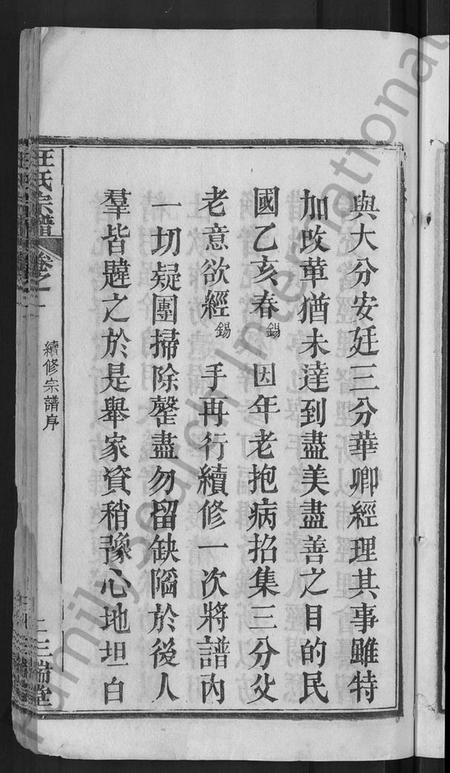 與大分安廷三分華卿經理其事雖特
加改革猶未達到盡美盡善之目的民
國乙亥春錫因年老抱病招集三分父
老意欲經錫手再行續修一次將譜內
一切疑團掃除罄盡勿留缺陷於後人
羣皆韙之於是舉家資稍豫心地坦白
汪氏宗譜
卷之一
續修宗譜序
二
三瑞堂
FamilySearch International